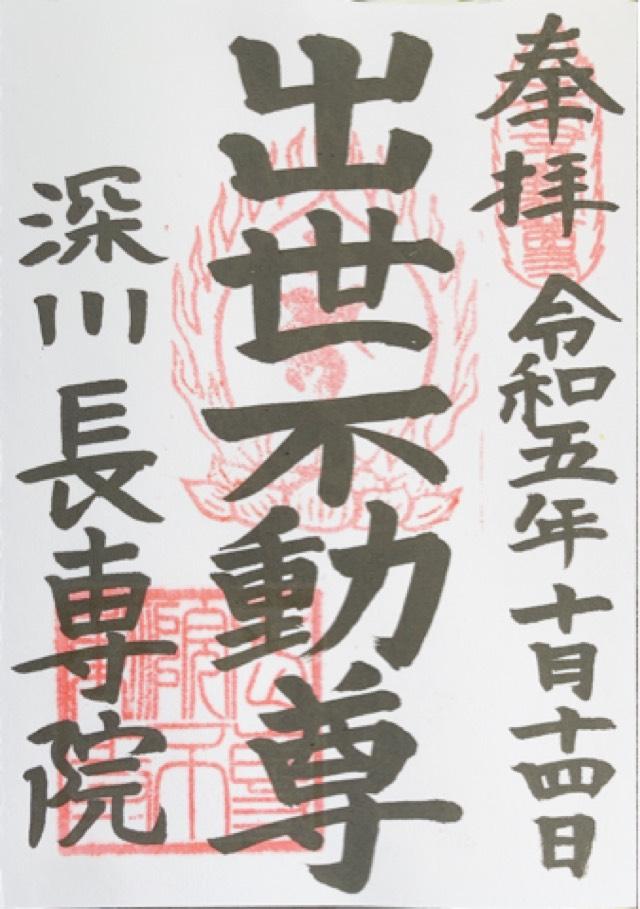 奉拝 令和五年十月十四日
出世不動尊
深川長専院